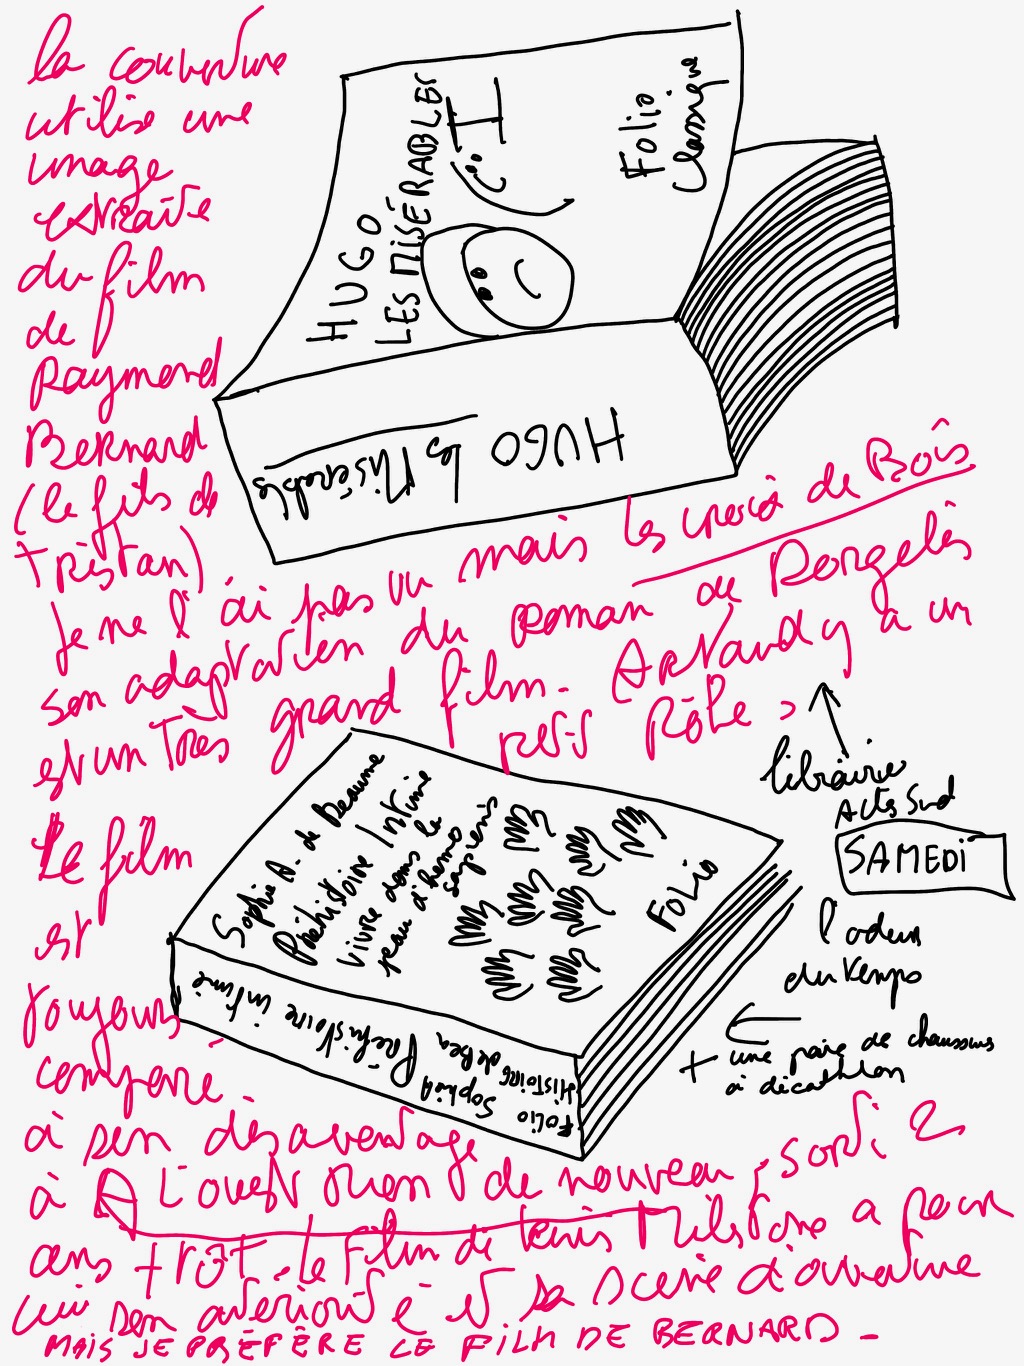 la couverture
utilise une
image
extraite
du film
de
Raymond
Bernard
(le fils de
Tristan)
Je ne l'ai pas vu mais les croix de Bois
son adaptation du roman de Dorgelès
est un Très grand film. Artaud y a un
petit Rôle.
HUGO
LES MISÉRABLES
I
Folio
Classique
HUGO les Misérables
librairie
Actes Sud
SAMEDI
l'odeur
du temps
+ une paire de chaussons
à décathlon
Sophie A. de Beaune
Préhistoire Intime
vivre dans la
peau d'homo
sapiens
FOLIO
Préhistoire intime
Sophie A
de Bea
FOLIO
HISTOIRE
Le film
est
toujours
comparé
à son désavantage
à A L'ouest Rien de nouveau, sorti 2
ans trot. le film de Lewis Milestone a pour
lui son antériorité et sa scène d'ouverture
MAIS JE PRÉFÈRE LE FILM DE BERNARD.